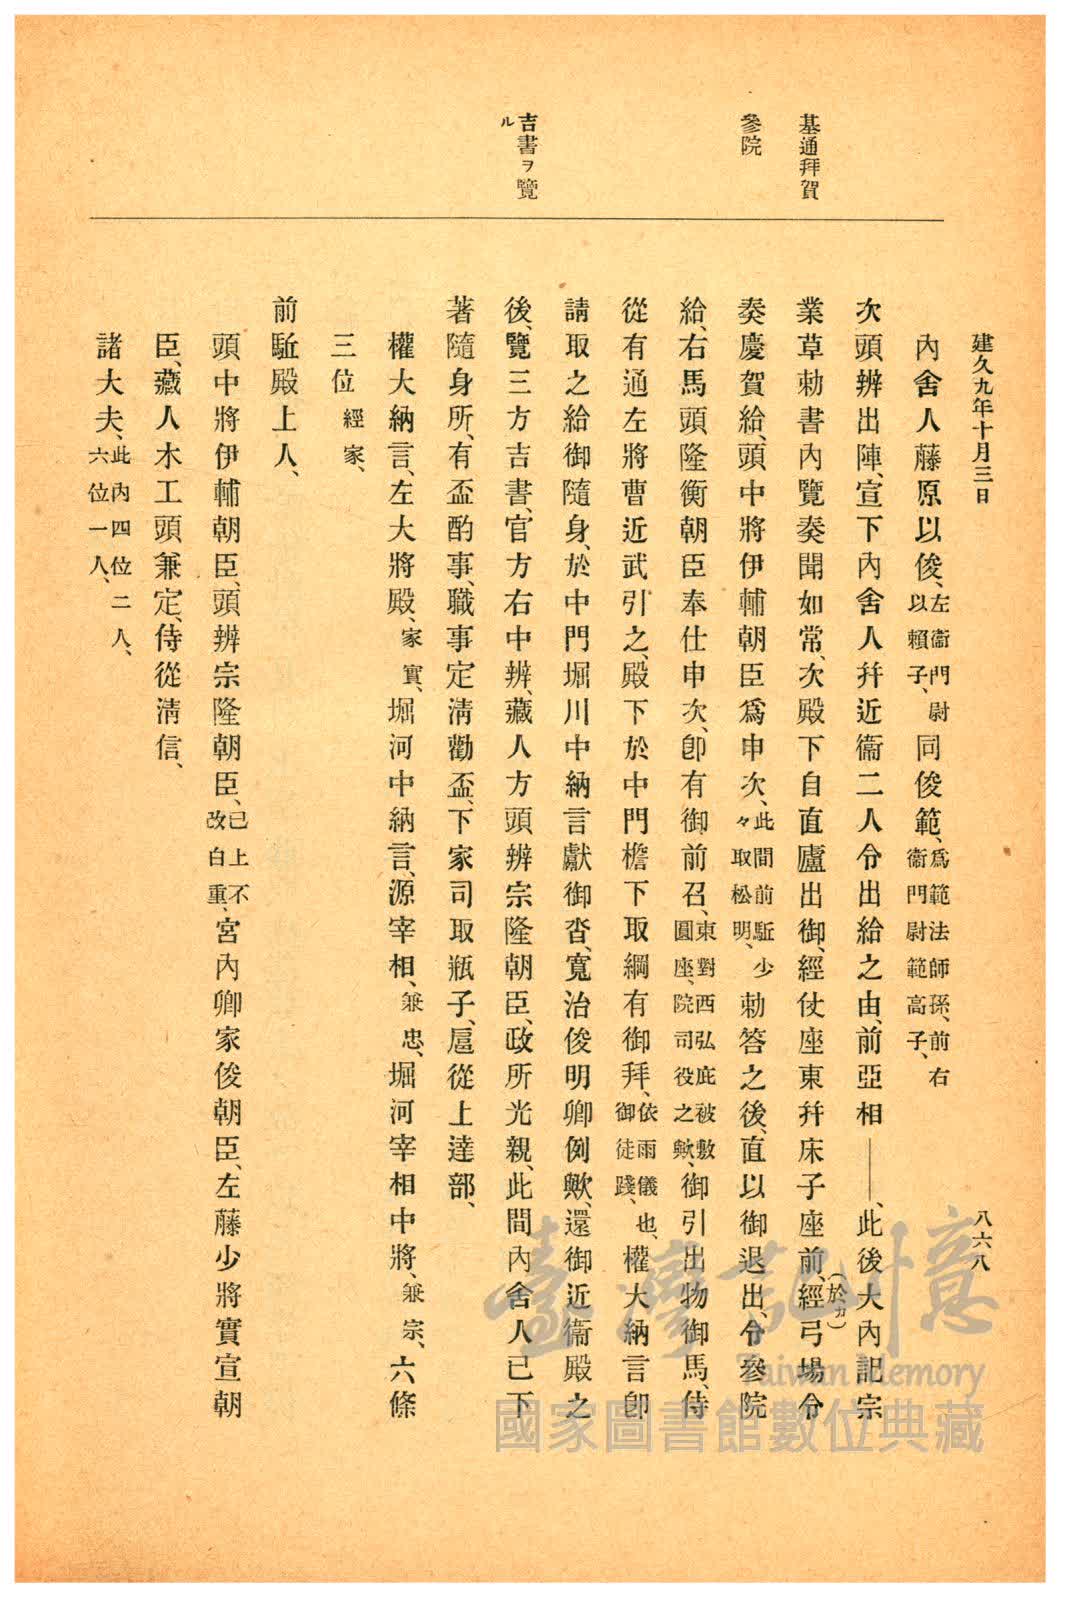 建久九年十月三日
八六八
基通拜賀
參院
吉書ヲ覽
ル
內舍人藤原以俊、左衞門尉以賴子、同俊範、爲範法師孫、前右衞門尉範高子、
次頭辨出陣、宣下內舍人幷近衞二人令出給之由、前亞相――、此後大內記宗
業草勅書內覽奏聞如常、次殿下自直廬出御、經仗座東幷床子座前、經弓場(於カ)令
奏慶賀給、頭中將伊輔朝臣爲申次、此間前駈少々取松明、勅答之後、直以御退出、令參院
給、右馬頭隆衡朝臣奉仕申次、卽有御前召、東對西弘庇被敷圓座、院司役之歟、御引出物御馬、侍
從有通左將曹近武引之、殿下於中門檐下取綱有御拜、依雨儀御徒踐也、權大納言卽
請取之給御隨身、於中門堀川中納言獻御沓、寬治俊明卿例歟、還御近衞殿之
後、覽三方吉書、官方右中辨、藏人方頭辨宗隆朝臣、政所光親、此間內舍人已下
著隨身所、有盃酌事、職事定淸勸盃、下家司取瓶子、扈從上達部、
權大納言、左大將殿、家實、堀河中納言、源宰相、兼忠、堀河宰相中將、兼宗、六條
三位經家、
前駈殿上人、
頭中將伊輔朝臣、頭辨宗隆朝臣、已上不改白重、宮內卿家俊朝臣、左藤少將實宣朝
臣、藏人木工頭兼定、侍從淸信、
諸大夫、此內四位二人、六位一人、
臺灣記憶
Taiwan Memory
國家圖書館數位典藏